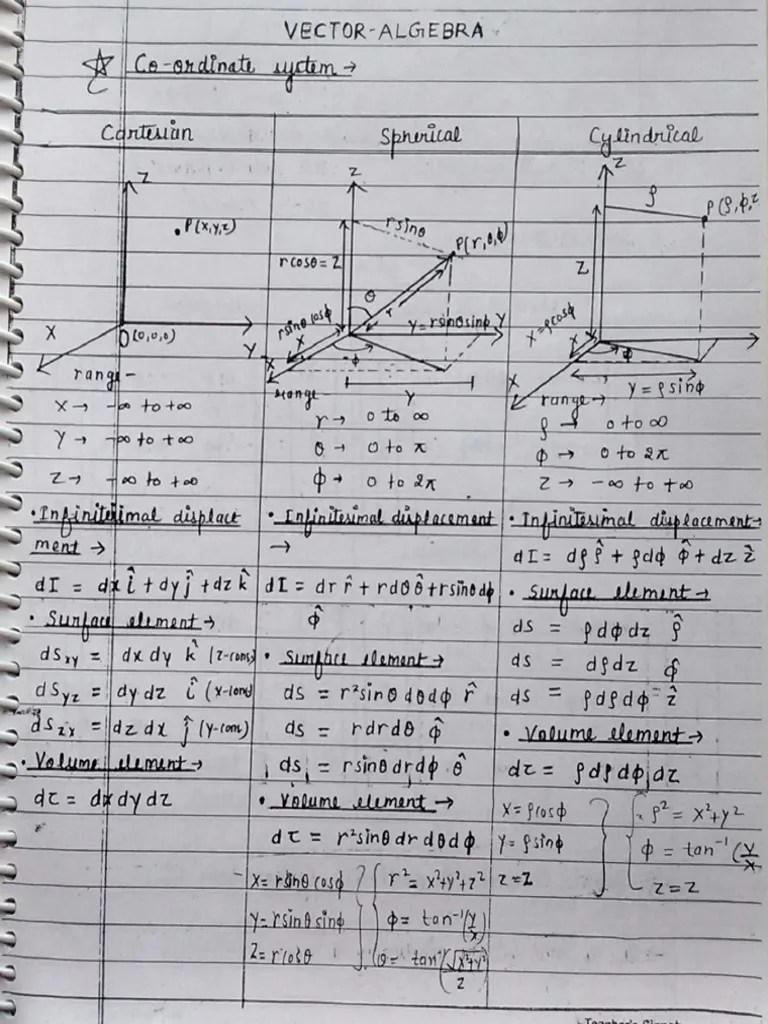 VECTOR-ALGEBRA
Co-ordinate system →
Cartesian
Z
P(x,y,z)
O(0,0,0)
X
Y
range -
X → -∞ to +∞
Y → -∞ to +∞
Z → -∞ to +∞
• Infinitesimal displace
ment →
dI = dx î + dy ĵ + dz k̂
• Surface element →
dSxy = dx dy k̂ (z-cons)
dSyz = dy dz î (x-cons)
dSzx = dz dx ĵ (y-cons)
• Volume element →
dτ = dx dy dz
Spherical
Z
r sinθ
P(r,θ,ϕ)
r cosθ = Z
θ
r
r sinθ cosϕ
X
Y = r sinθ sinϕ
Y
X
ϕ
Y
range -
r → 0 to ∞
θ → 0 to π
ϕ → 0 to 2π
• Infinitesimal displacement
→
dI = dr r̂ + r dθ θ̂ + r sinθ dϕ
ϕ̂
• Surface element →
ds = r² sinθ dθ dϕ r̂
ds = r dr dθ ϕ̂
ds = r sinθ dr dϕ θ̂
• Volume element →
dτ = r² sinθ dr dθ dϕ
X = r sinθ cosϕ
Y = r sinθ sinϕ
Z = r cosθ
r² = x²+y²+z²
ϕ = tan⁻¹(y/x)
θ = tan⁻¹(√x²+y²/z)
Cylindrical
Z
ρ
P(ρ,ϕ,z
Z
X = ρcosϕ
X
ϕ
X
Y = ρ sinϕ
range →
ρ → 0 to ∞
ϕ → 0 to 2π
Z → -∞ to +∞
• Infinitesimal displacement →
dI = dρ ρ̂ + ρdϕ ϕ̂ + dz ẑ
• Surface element →
ds = ρ dϕ dz ρ̂
ds = dρ dz ϕ̂
ds = ρ dρ dϕ ẑ
• Volume element →
dτ = ρ dρ dϕ dz
X = ρcosϕ
Y = ρsinϕ
Z = Z
ρ² = x²+y²
ϕ = tan⁻¹(y/x
Z = Z